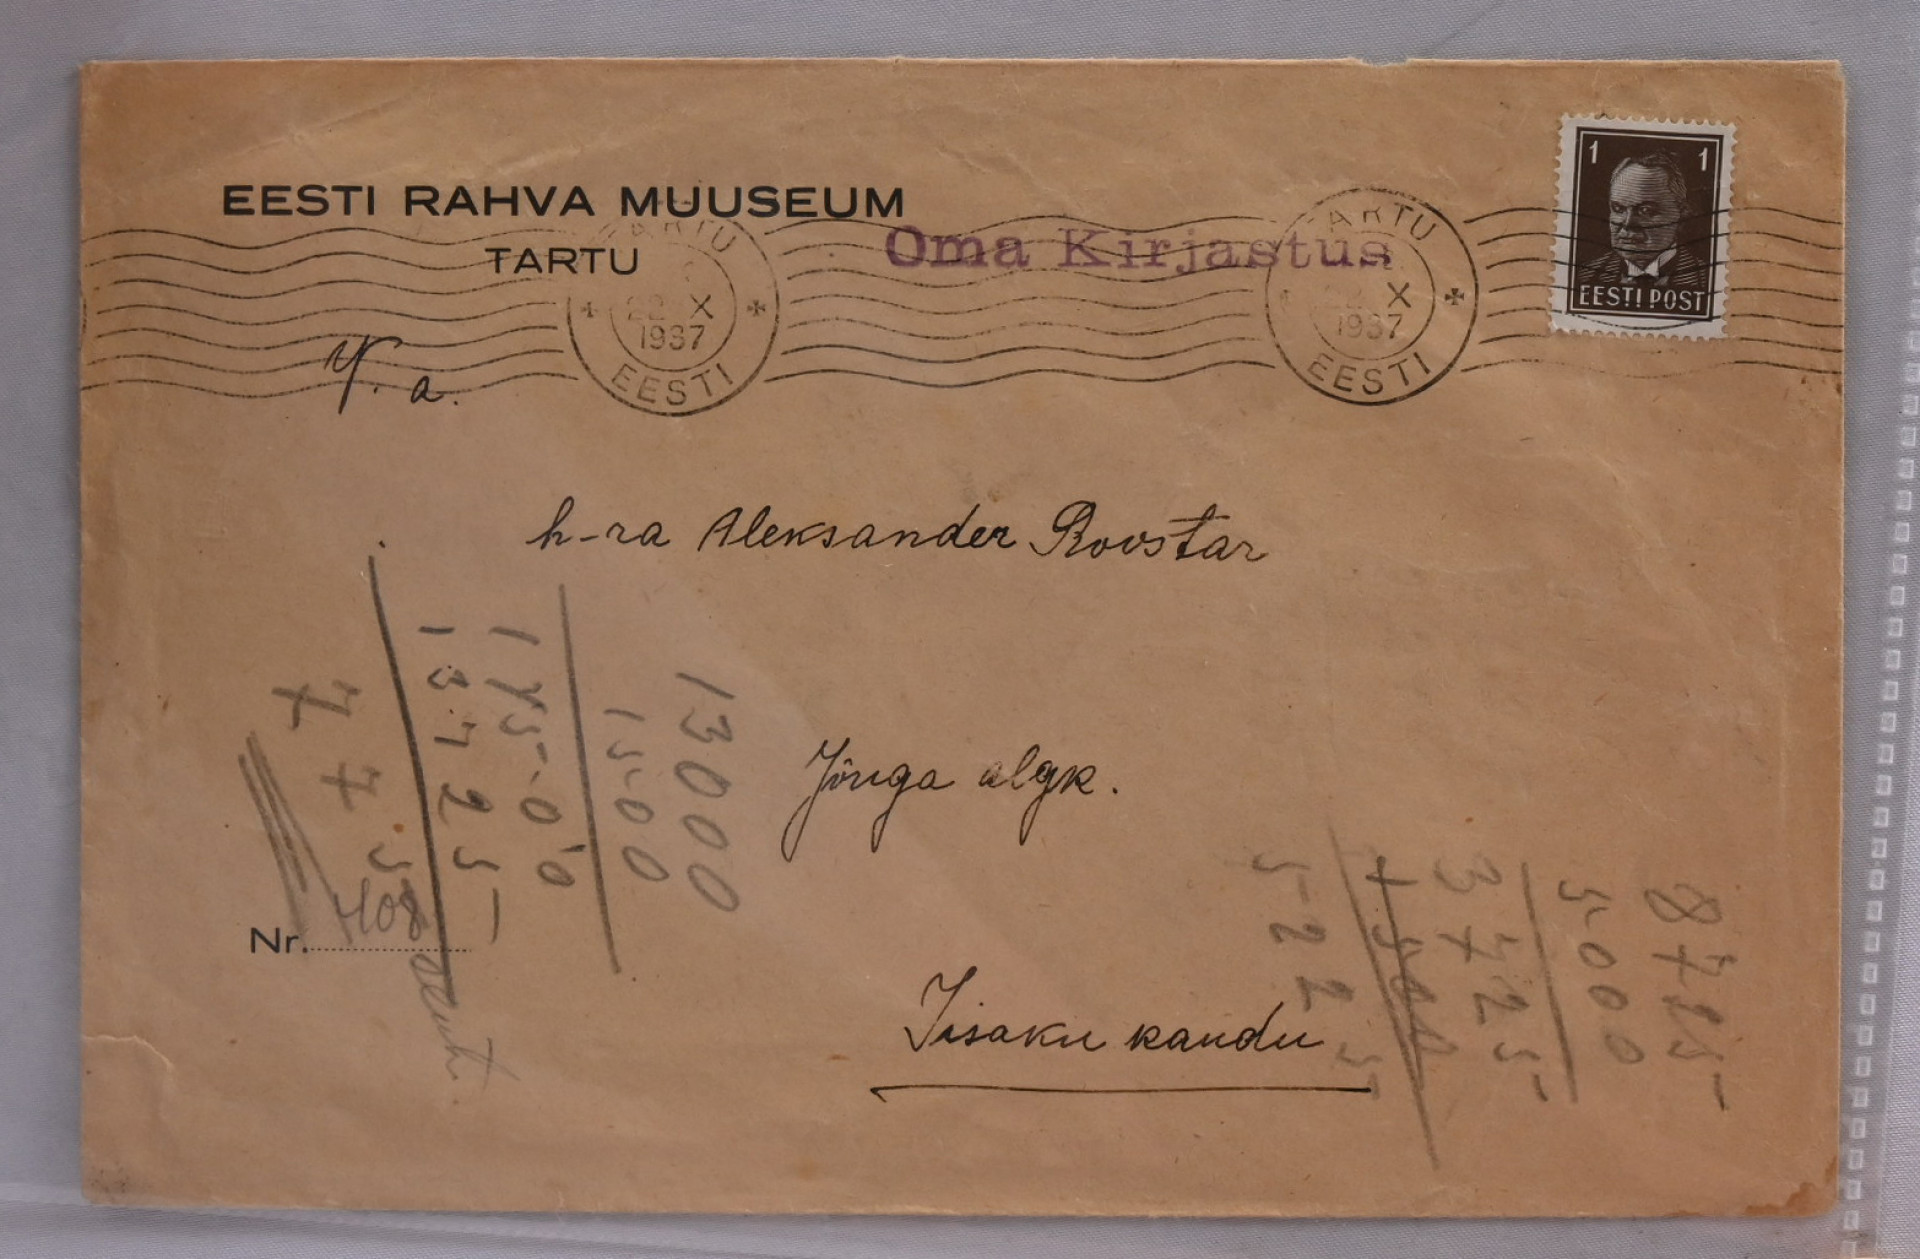 EESTI RAHVA MUUSEUM
TARTU
Oma Kirjastus
1 1
EESTI POST
TARTU
22 X
1937
EESTI
TARTU
X
1937
EESTI
h-ra Aleksander Roostar
Jõuga algk.
Iisaku kaudu
Nr.
13000
1500
8725
5000
3725
5225